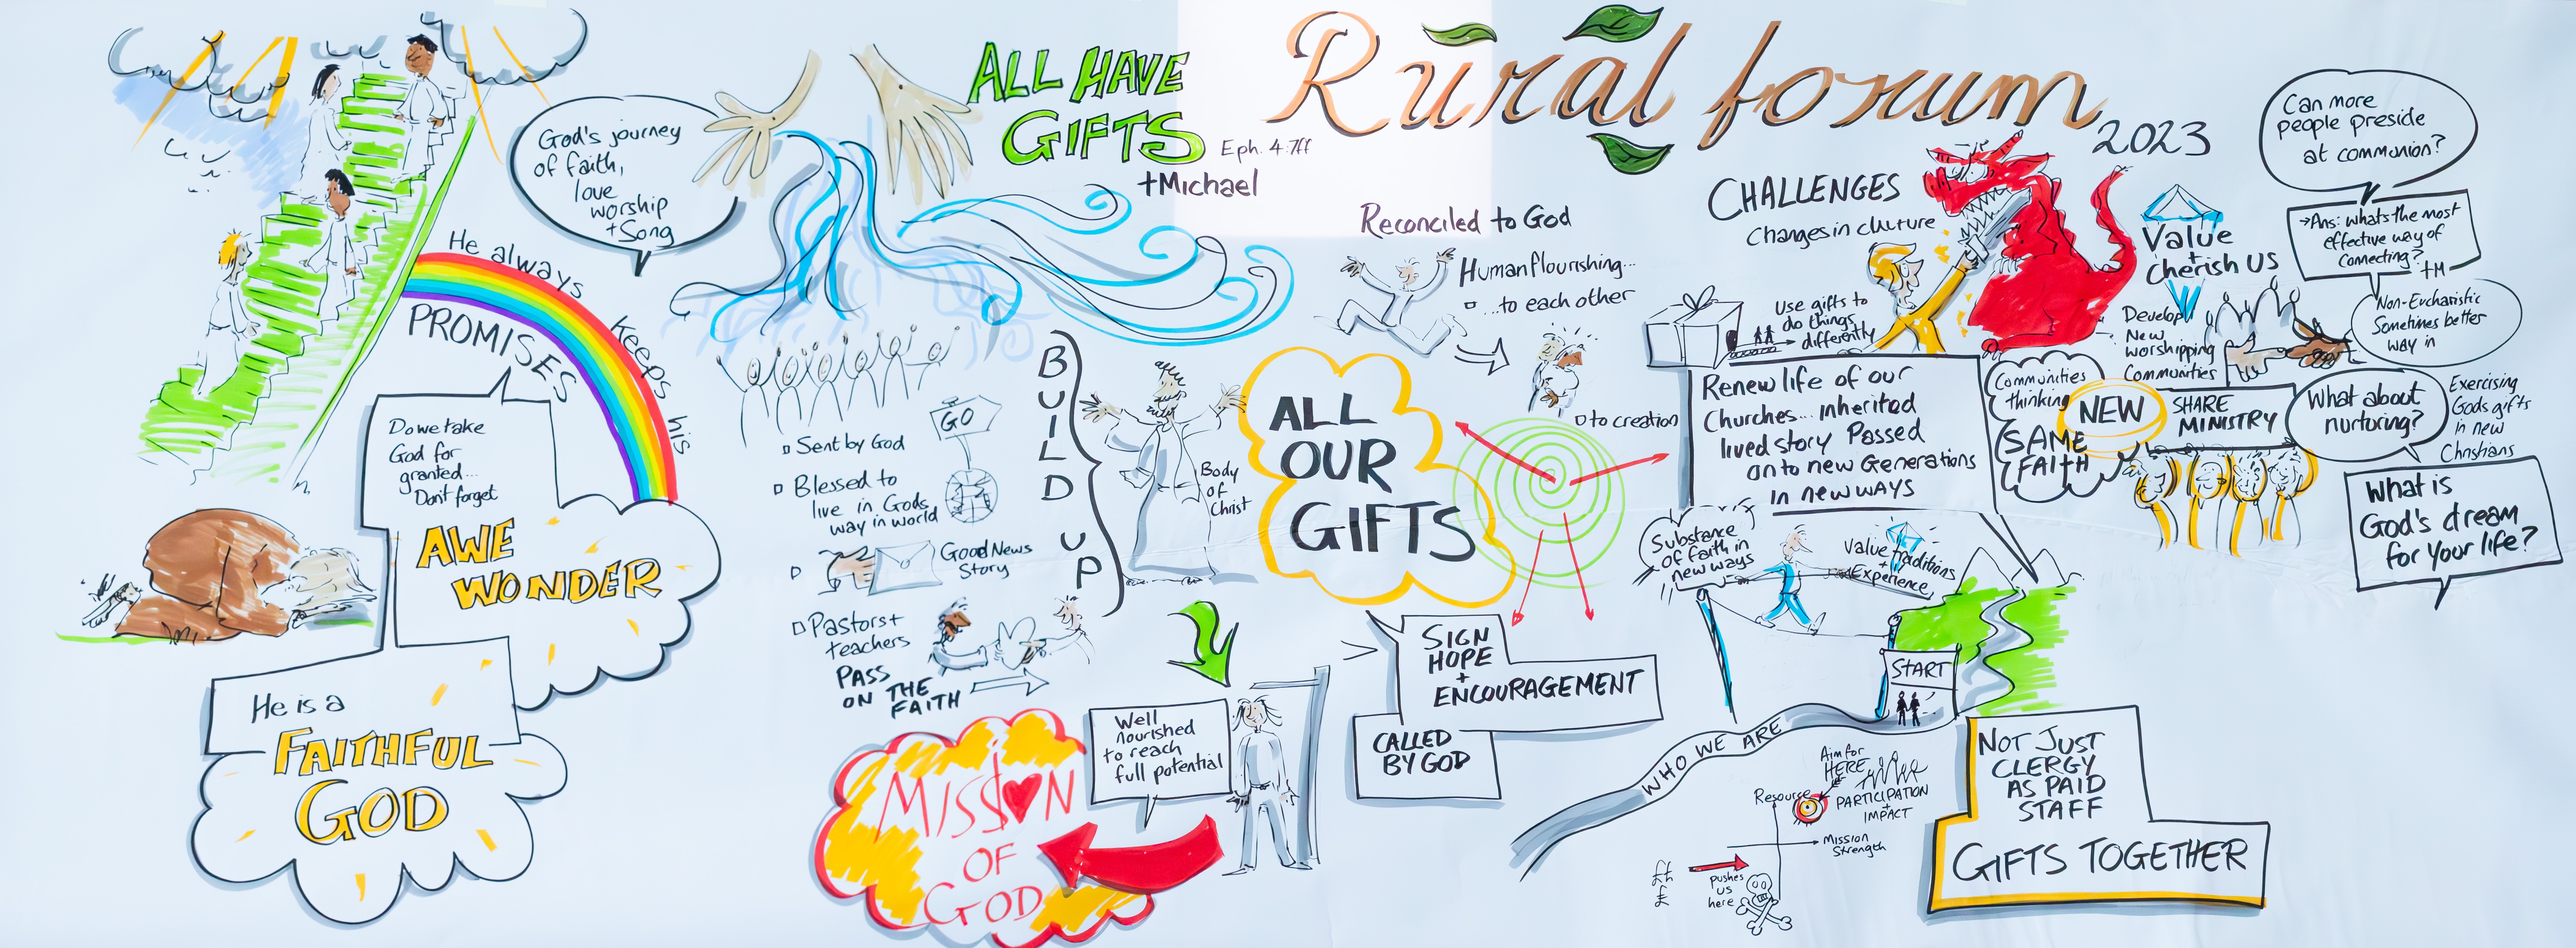 Rural forum
2023
ALL HAVE
GIFTS
Eph. 4:7ff
+Michael
God's journey
of faith,
love
worship
+ Song
He always
keeps
his
PROMISES
Do we take
God for
granted...
Don't forget
AWE
WONDER
He is a
FAITHFUL
GOD
Sent by God
GO
Blessed to
live in Gods
way in world
Good News
Story
Pastors +
teachers
PASS
ON THE
FAITH
BUILD UP
Body
of
Christ
ALL
OUR
GIFTS
Reconciled to God
Human flourishing...
...to each other
to creation
Well
nourished
to reach
full potential
MISSION
OF
GOD
SIGN
HOPE
+
ENCOURAGEMENT
CALLED
BY GOD
CHALLENGES
Changes in culture
Use gifts to
do things
differently
Renew life of our
Churches... inherited
lived story Passed
on to new Generations
in new WAYS
Communities
thinking
NEW
(SAME
FAITH
Value
+
Cherish US
Develop
New
worshipping
Communities
SHARE
MINISTRY
Can more
people preside
at communion?
→Ans: whats the most
effective way of
connecting?
+M
Non-Eucharistic
Sometimes better
way in
What about
nurturing?
Exercising
Gods gifts
in new
Christians
What is
God's dream
for your life?
Substance
of faith in
new ways
Value Traditions
+
Experience
START
WHO WE ARE
Aim for
HERE
PARTICIPATION
+
IMPACT
Resource
Mission
Strength
££
£
pushes
us
here
NOT JUST
CLERGY
AS PAID
STAFF
GIFTS TOGETHER